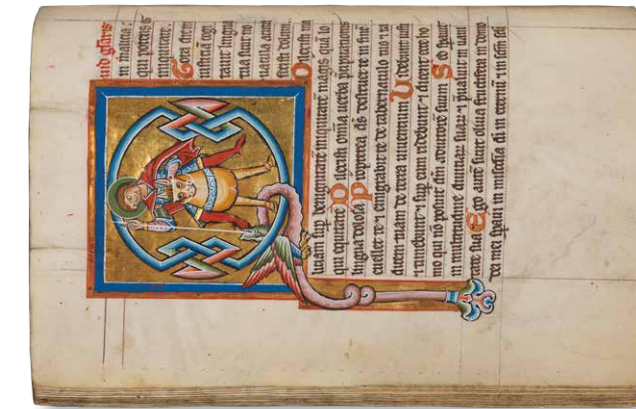 uid gl'aris
in malicia:
qui potens es
iniquitate.
Tota die in
iusticiā cogi
tauit lingua
tua sicut no
uacula acuta
fecisti dolum.
Dilexisti ma
liciam sup benignitatē iniquitatē magis quā lo
qui equitatē Dilexisti omīa uerba p̄cipitationis
lingua dolosa Propterea ds̄ destruet te in fine
euellet te ⁊ emigrabit te de tabernaculo tuo ⁊ ra
dicem tuam de terra uiuentium Videbunt iusti
⁊ timebunt ⁊ sup eum ridebunt ⁊ dicent ecce ho
mo qui nō posuit dm̄ adiutorē suum Sed sperauit
in multitudine diuitiarū suarū ⁊ preualuit in uani
tate sua Ego autē sicut oliua fructifera in domo
dei speraui in mīscdia di in eternū ⁊ in sc̄lm